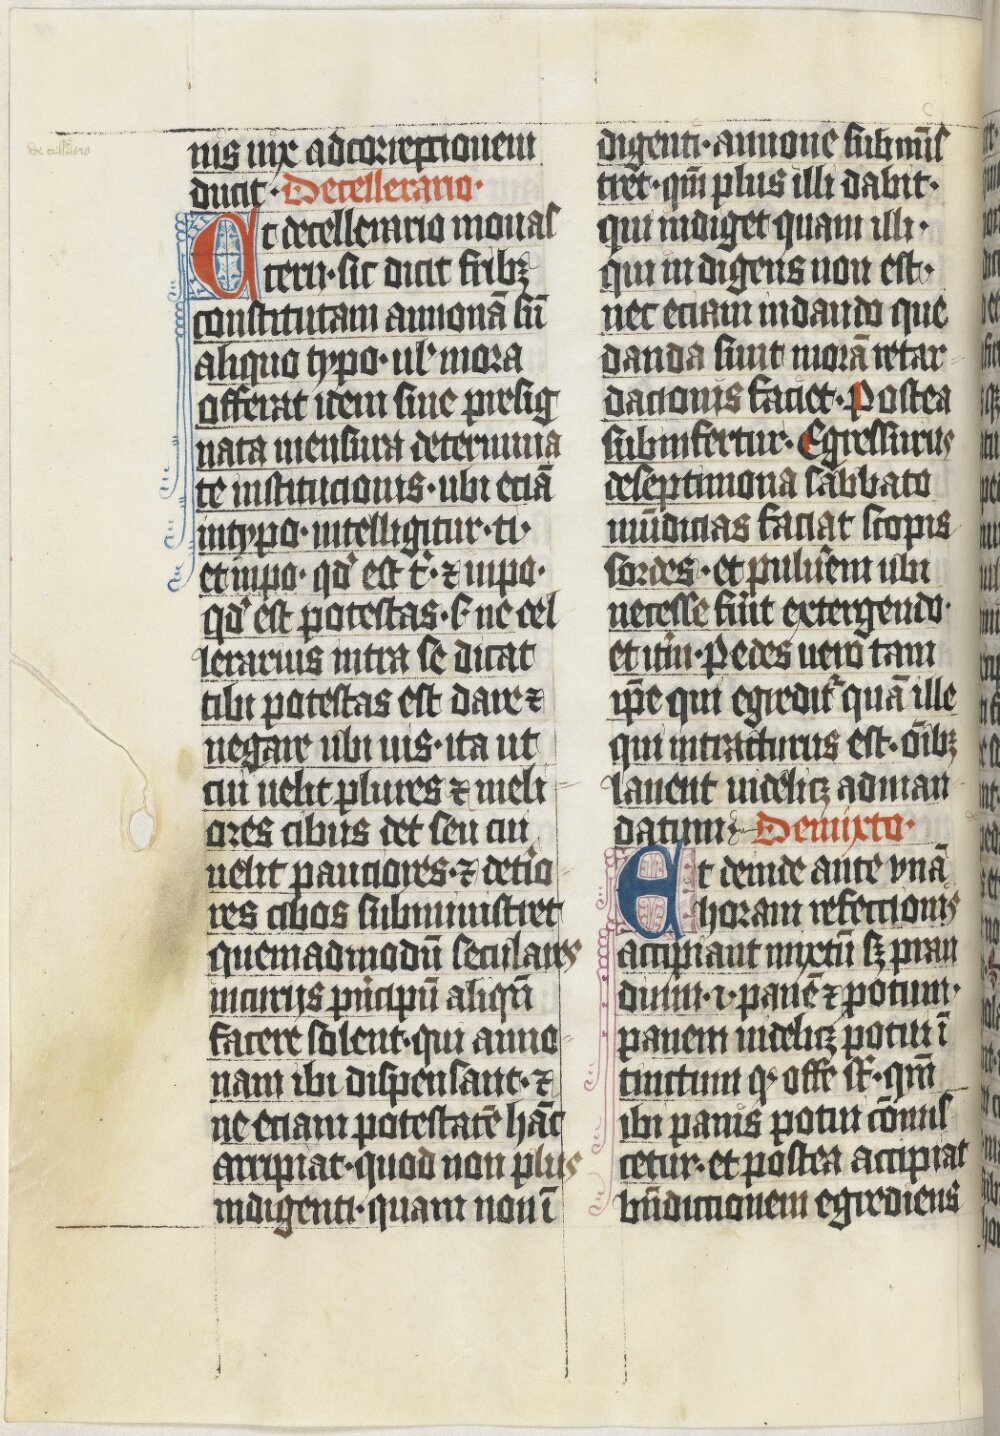 de cellario
nis uix adcorreptionem
ducit · De cellerario ·
At decellerario monas
terii · sic dicit fribꝫ
constitutam annonā sū
aliquo typo · ul' mora
offerat idem siue presig
nata mensura determina
te institucionis · ubi eciā
intypo · intelligitur · ti ·
et inpo · qd' est t' · ⁊ inpo ·
qd' est potestas · s' ne cel
lerarius intra se dicat
tibi potestas est dare ⁊
negare ubi uis · ita ut
cui uelit plures ⁊ meli
ores cibus det seu cui
uelit pauciores · ⁊ deterio
res cibos subministret
quemadmodū seculares
incurijs pncipū aliqn̄
facere solent · qui anno
nam ibi dispensant · ⁊
ne eciam potestatē hāc
arripiat · quod non plus
indigenti · quam non ī
digenti · annone submīs
tret · qm̄ plus illi dabit ·
qui indiget quam illi ·
qui indigens non est ·
nec eciam indando que
danda sunt morā retar
dacionis faciet · Postea
subinfertur · Egressurus
deseptimona sabbato
mūdicias faciat scopis
sordes · et puluērem ubi
necesse fūit extergendo ·
et itm̄ · Pedes uero tam
ip̄e qui egredit' quā ille
qui intraturus est · ōibꝫ
lauent uidelicꝫ adman
datum Demixto ·
Et deinde ante vnā
horam refectionis
accipiant mixtū sꝫ pran
dium · i · panē ⁊ potum ·
panem uidelicꝫ potui ī
tinctum qd offe fr̄ · qm̄
ibi panis potui cōmis
cetur · et postea accipiat
bn̄dictionem egrediens